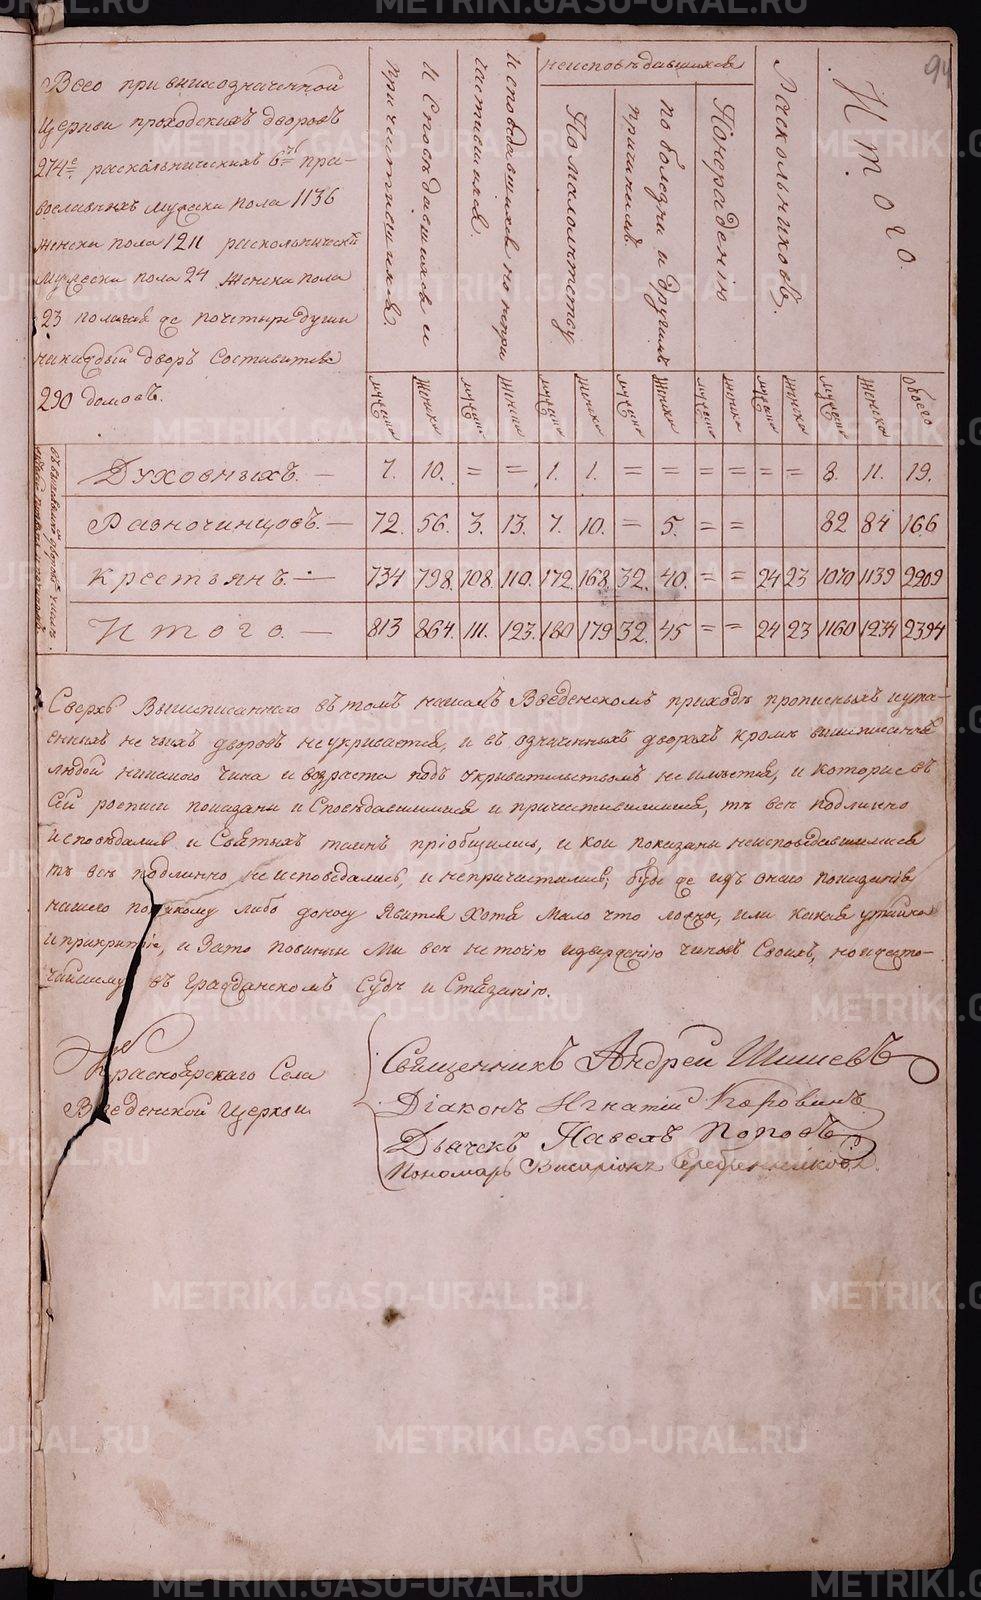 94
Всего при вышеозначенной
Церкви проходскихъ дворовъ
274е раскольническихъ 6ть пра-
вославныхъ мужеска пола 1136
женска пола 1211 раскольническ
мужеска пола 24 женска пола
23 полагая же почетыре души
накаждый дворъ Составится
290 домовъ.
И Сповѣдавшихся и
причастившихся.
Исповѣдавшихся но непри
частившихся.
неисповѣдавшихся
По малолѣтству
по болезни и другимъ
причинамъ
По нерадѣнiю
Раскольниковъ
Итого.
мужска женска мужска женска мужска женска мужска женска мужска женска мужска женска мужска женска обоего
Духовныхъ. — 7. 10. = = 1. 1. = = = = = = 8. 11. 19.
Разночинцовъ. — 72. 56. 3. 13. 7. 10. = 5. = = 82 84 166
Крестьянъ. — 734 798. 108. 110. 172. 168. 32. 40. = = 24 23 1070 1139 2209
Итого. — 813 864. 111. 123. 180 179 32. 45 = = 24 23 1160 1234 2394
Сверхъ Вышеписаннаго въ томъ нашемъ Введенскомъ приходѣ прописныхъ иута-
енныхъ не чьихъ дворовъ неукрывается, и въ означенныхъ дворахъ кромѣ вышеписанныхъ
людей никакого чина и возраста подъ укрывательствомъ неимѣется, и которые въ
Сей росписи показаны и Сповѣдавшимися и причастившимися, тѣ всѣ подлинно
исповѣдались и Святыхъ таинъ прiобщились, и кои показаны неисповѣдавшимися
тѣ всѣ подлинно неисповедались, и непричастились; буде же изъ онаго показанiя
нашего по какому либо доносу Явится Хотя Мало что ложны, или какая утайка
и прикрытiе, и Зато повинны Мы всѣ не точiю изверженiю чиновъ Своихъ, но ижесто-
чайшему въ гражданскомъ Судѣ и Стязанiю.
Красноярскаго Села
Введенской Церкви
Священникъ Андрей Шишевъ
Дiаконъ Игнатiй Коровинъ
Дьячекъ Павелъ Поповъ
Пономарь Висарiонъ Серебренниковъ.
METRIKI.GASO-URAL.RU